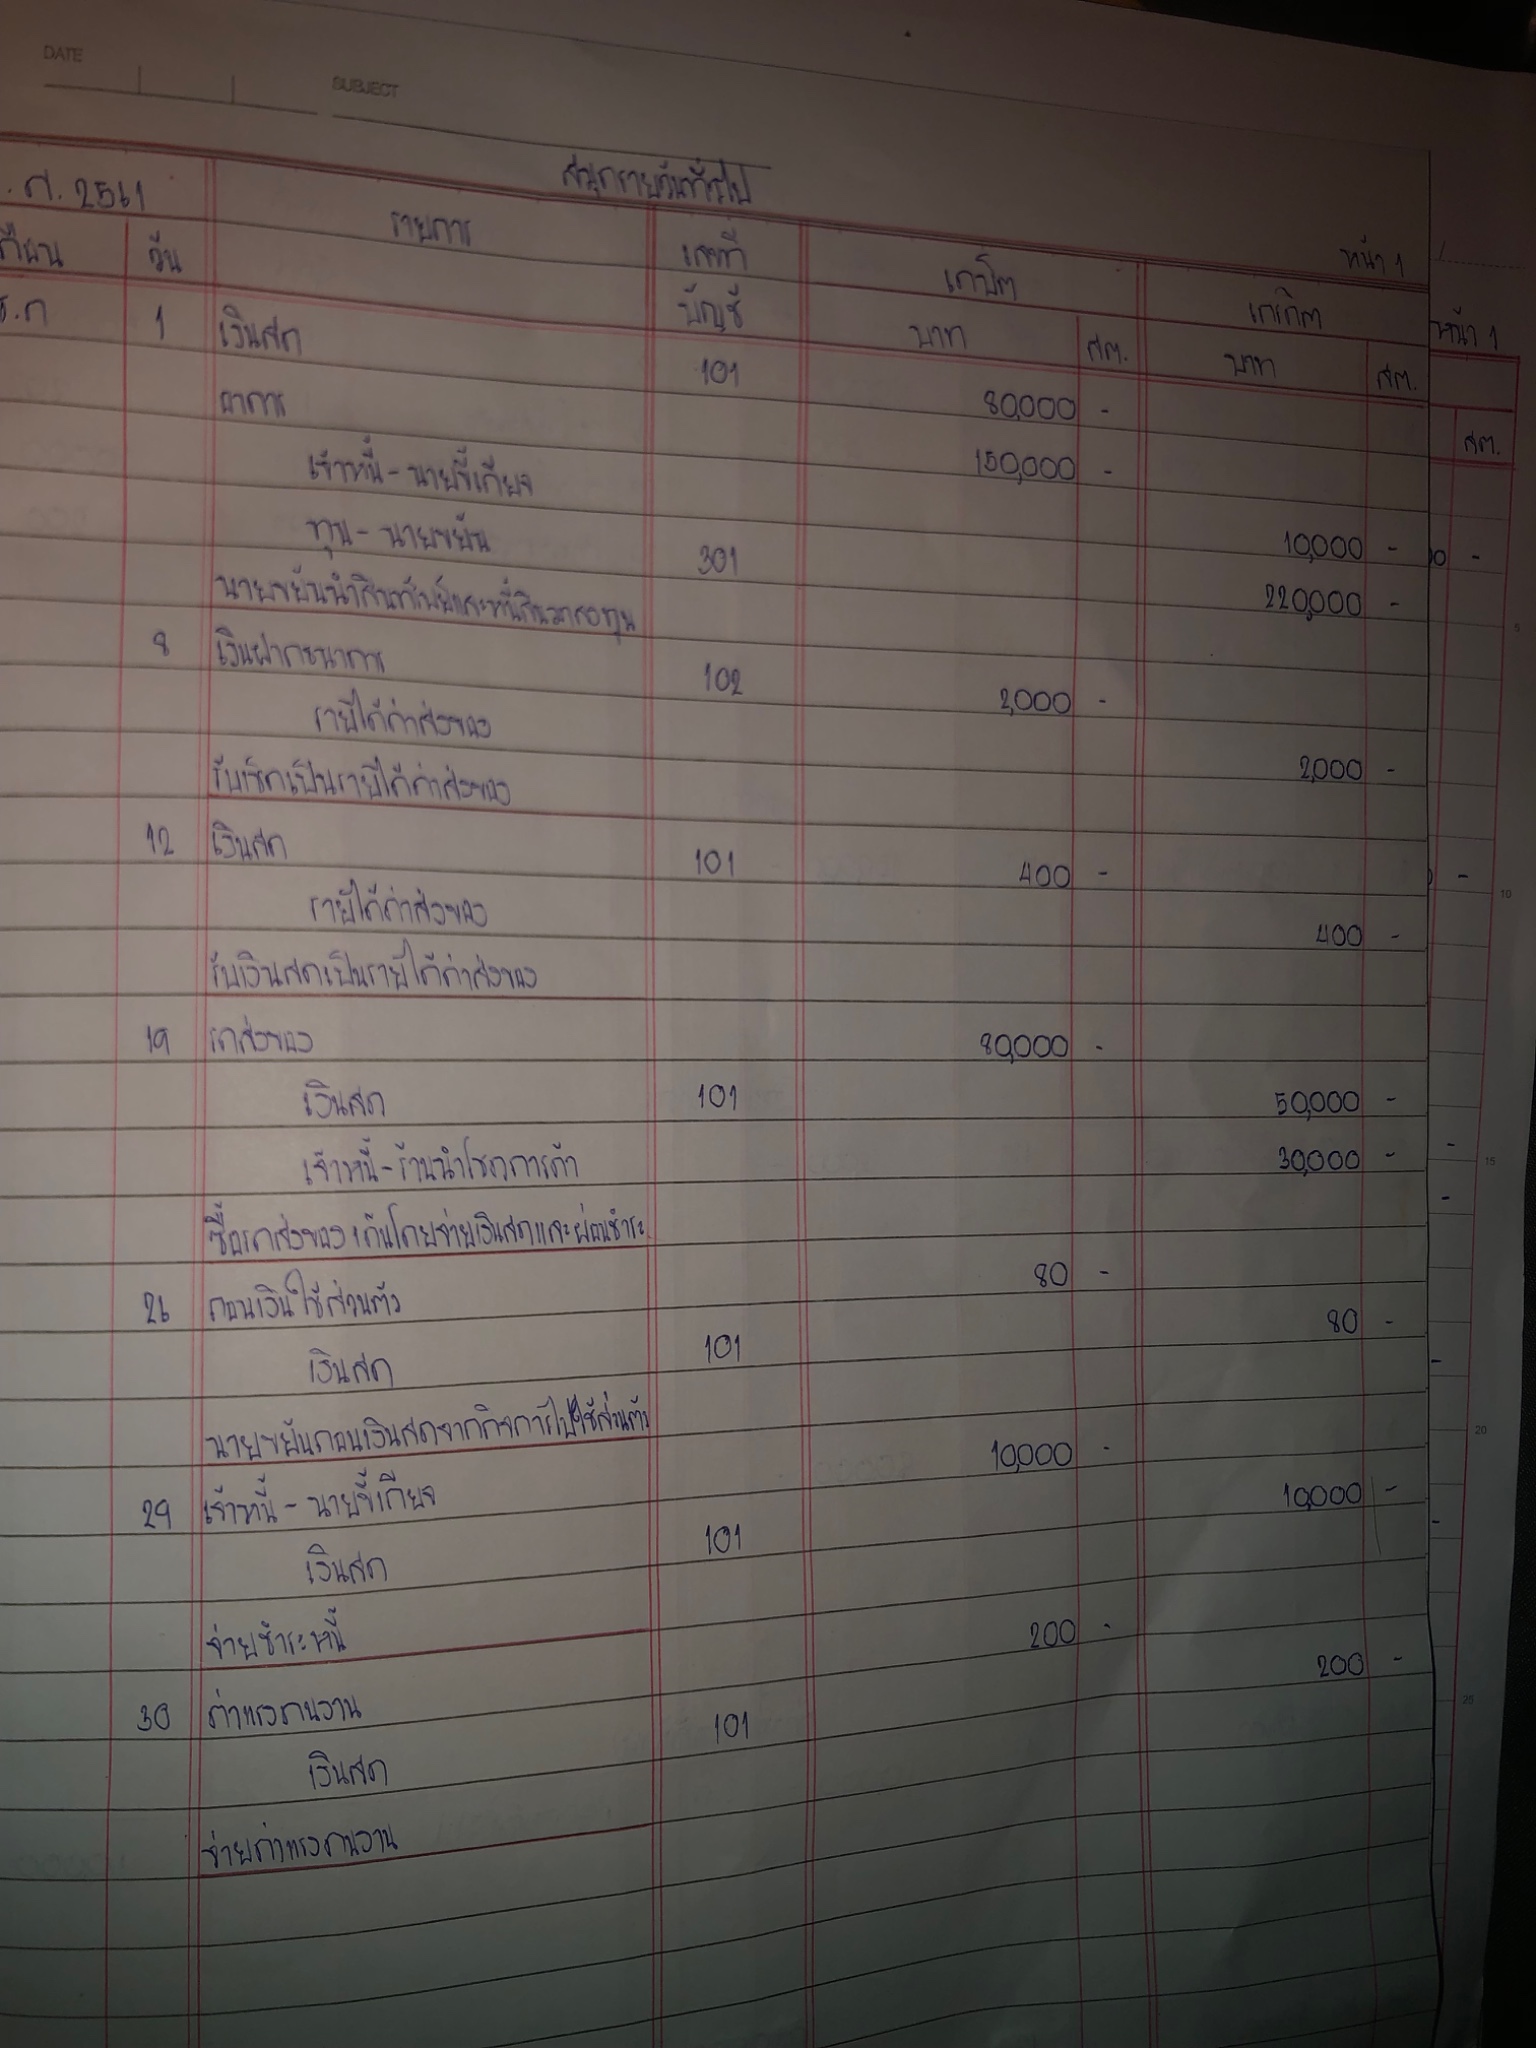 DATE
SUBJECT
สมุดรายวันทั่วไป
หน้า 1
.ศ. 2561 รายการ เลขที่ เดบิต เครดิต หน้า 1
เดือน วัน บัญชี บาท สต. บาท สต.
ธ.ค 1 เงินสด 101 80,000 - สต.
อาคาร 150,000 -
เจ้าหนี้ - นายขี้เกียจ 10,000 -
ทุน - นายขยัน 301 220,000 -
นายขยันนำสินทรัพย์และหนี้สินมาลงทุน 5
8 เงินฝากธนาคาร 102 2,000 -
รายได้ค่าส่งของ 2,000 -
รับเช็คเป็นรายได้ค่าส่งของ
12 เงินสด 101 400 - 10
รายได้ค่าส่งของ 400 -
รับเงินสดเป็นรายได้ค่าส่งของ
19 รถส่งของ 80,000 -
เงินสด 101 50,000 -
เจ้าหนี้ - ร้านนำโชคการค้า 30,000 - 15
ซื้อรถส่งของ 1 คันโดยจ่ายเงินสดและผ่อนชำระ
26 ถอนเงินใช้ส่วนตัว 80 -
เงินสด 101 80 -
นายขยันถอนเงินสดจากกิจการไปใช้ส่วนตัว 20
29 เจ้าหนี้ - นายขี้เกียจ 10,000 -
เงินสด 101 10,000 -
จ่ายชำระหนี้
30 ค่าแรงคนงาน 200 - 25
เงินสด 101 200 -
จ่ายค่าแรงคนงาน